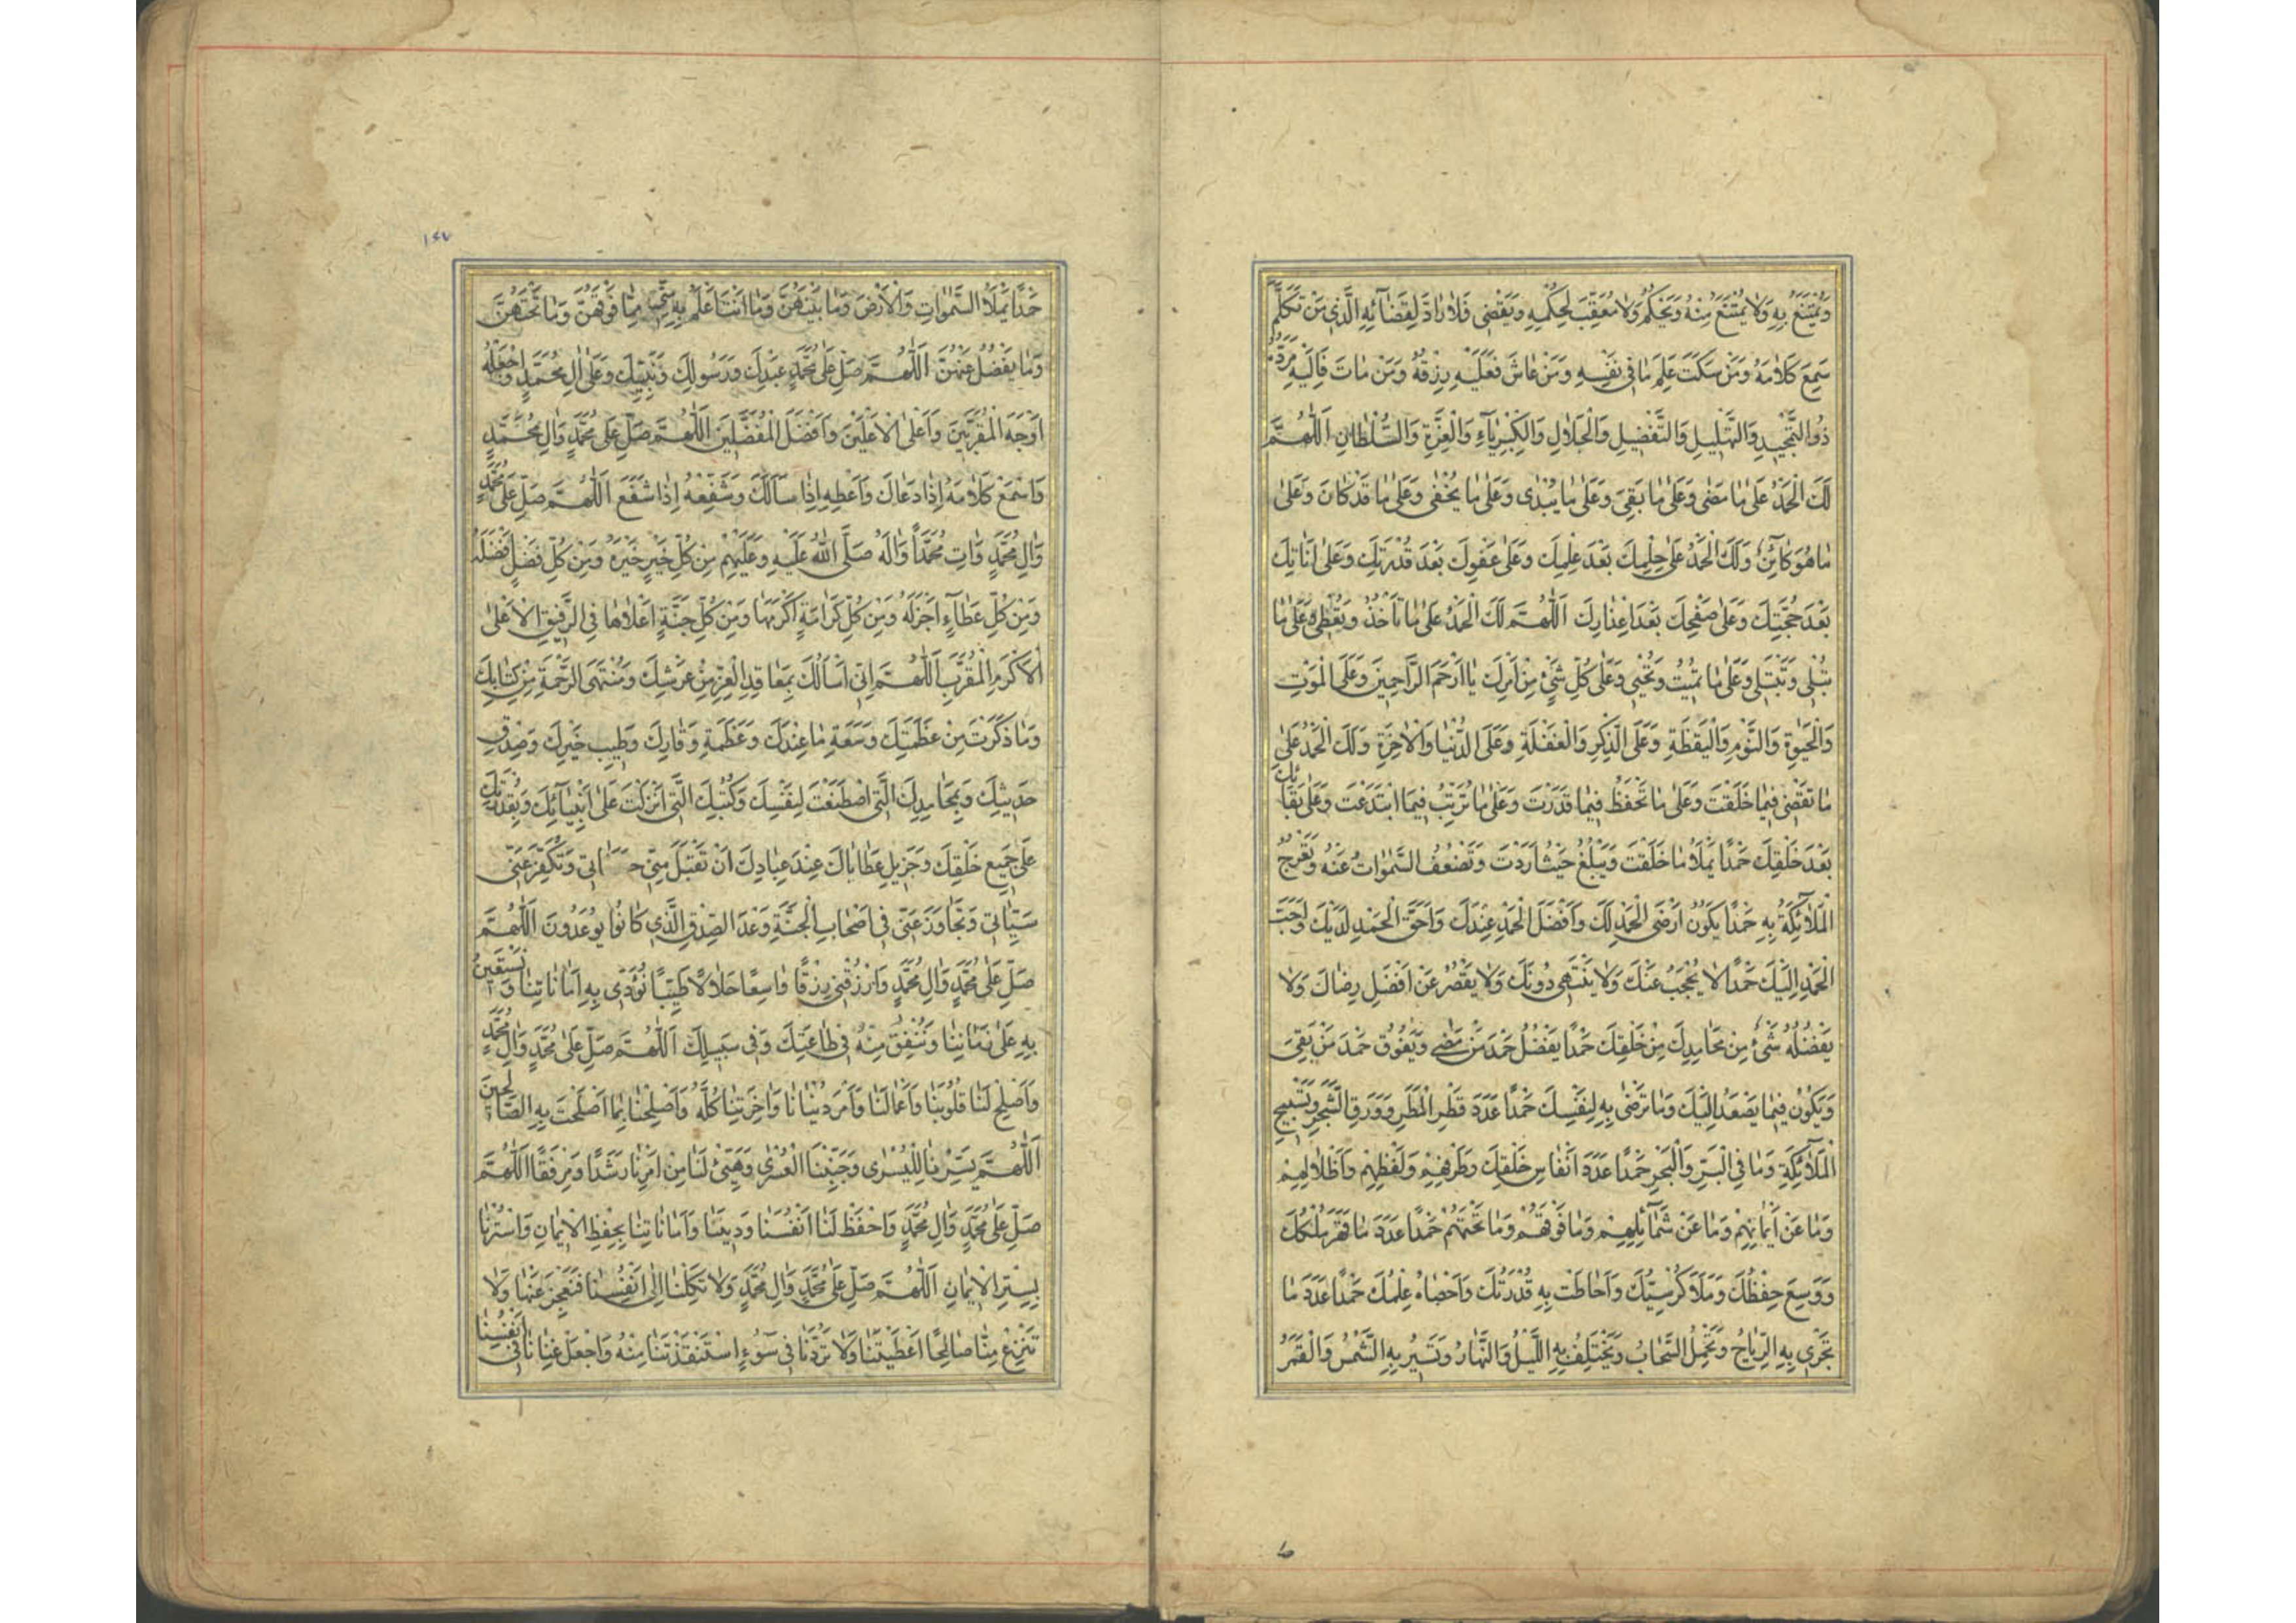 وَيُمْتَنَعُ بِهِ وَلَا يُمْتَنَعُ مِنْهُ وَيَحْكُمُ وَلَا مُعَقِّبَ لِحُكْمِهِ وَيَقْضِى فَلَا رَادَّ لِقَضَآئِهِ الَّذِي مَنْ تَكَلَّمَ
سَمِعَ كَلَامَهُ وَمَنْ سَكَتَ عَلِمَ مَا فِي نَفْسِهِ وَمَنْ عَاشَ فَعَلَيْهِ رِزْقُهُ وَمَنْ مَاتَ فَاِلَيْهِ مَرَدُّهُ
ذُو التَّمْجِيدِ وَالتَّهْلِيلِ وَالتَّفْضِيلِ وَالْجَلَالِ وَالْكِبْرِيَآءِ وَالْعِزَّةِ وَالسُّلْطَانِ اَللّٰهُمَّ
لَكَ الْحَمْدُ عَلَى مَا مَضَى وَعَلَى مَا بَقِيَ وَعَلَى مَا يُبْدَى وَعَلَى مَا يُخْفَى وَعَلَى مَا قَدْ كَانَ وَعَلَى
مَا هُوَ كَائِنٌ وَلَكَ الْحَمْدُ عَلَى حِلْمِكَ بَعْدَ عِلْمِكَ وَعَلَى عَفْوِكَ بَعْدَ قُدْرَتِكَ وَعَلَى اَنَاتِكَ
بَعْدَ حُجَّتِكَ وَعَلَى صَفْحِكَ بَعْدَ اِعْذَارِكَ اَللّٰهُمَّ لَكَ الْحَمْدُ عَلَى مَا تَأْخُذُ وَتُعْطِى وَعَلَى مَا
تُبْلِى وَتَبْتَلِى وَعَلَى مَا تُمِيتُ وَتُحْيِى وَعَلَى كُلِّ شَيْءٍ مِنْ اَمْرِكَ يَا اَرْحَمَ الرَّاحِمِينَ وَعَلَى الْمَوْتِ
وَالْحَيٰوةِ وَالنَّوْمِ وَالْيَقَظَةِ وَعَلَى الذِّكْرِ وَالْغَفْلَةِ وَعَلَى الدُّنْيَا وَالْاٰخِرَةِ وَلَكَ الْحَمْدُ عَلَى
مَا تَقْضِى فِيمَا خَلَقْتَ وَعَلَى مَا تَحْفَظُ فِيمَا قَدَّرْتَ وَعَلَى مَا تُرَتِّبُ فِيمَا ابْتَدَعْتَ وَعَلَى بَقَائِكَ
بَعْدَ خَلْقِكَ حَمْدًا يَمْلَأُ مَا خَلَقْتَ وَيَبْلُغُ حَيْثُ اَرَدْتَ وَتَضْعُفُ السَّمٰوَاتُ عَنْهُ وَتَعْرُجُ
الْمَلَآئِكَةُ بِهِ حَمْدًا يَكُونُ اَرْضَى الْحَمْدِ لَكَ وَاَفْضَلَ الْحَمْدِ عِنْدَكَ وَاَحَقَّ الْحَمْدِ لَدَيْكَ وَاَحَبَّ
الْحَمْدِ اِلَيْكَ حَمْدًا لَا يُحْجَبُ عَنْكَ وَلَا يَنْتَهِى دُونَكَ وَلَا يَقْصُرُ عَنْ اَفْضَلِ رِضَاكَ وَلَا
يَفْضُلُهُ شَيْءٌ مِنْ مَحَامِدِكَ مِنْ خَلْقِكَ حَمْدًا يَفْضُلُ حَمْدَ مَنْ مَضَى وَيَفُوقُ حَمْدَ مَنْ بَقِىَ
وَيَكُونُ فِيمَا يَصْعَدُ اِلَيْكَ وَمَا تَرْضَى بِهِ لِنَفْسِكَ حَمْدًا عَدَدَ قَطْرِ الْمَطَرِ وَوَرَقِ الشَّجَرِ وَتَسْبِيحِ
الْمَلَآئِكَةِ وَمَا فِي الْبَرِّ وَالْبَحْرِ حَمْدًا عَدَدَ اَنْفَاسِ خَلْقِكَ وَطَرْفِهِمْ وَلَفْظِهِمْ وَاَظْلَالِهِمْ
وَمَا عَنْ اَيْمَانِهِمْ وَمَا عَنْ شَمَآئِلِهِمْ وَمَا فَوْقَهُمْ وَمَا تَحْتَهُمْ حَمْدًا عَدَدَ مَا قَهَرَ مُلْكُكَ
وَوَسِعَ حِفْظُكَ وَمَلَأَ كُرْسِيُّكَ وَاَحَاطَتْ بِهِ قُدْرَتُكَ وَاَحْصَاهُ عِلْمُكَ حَمْدًا عَدَدَ مَا
تَجْرِى بِهِ الرِّيَاحُ وَتَحْمِلُ السَّحَابُ وَيَخْتَلِفُ بِهِ اللَّيْلُ وَالنَّهَارُ وَتَسِيرُ بِهِ الشَّمْسُ وَالْقَمَرُ
١٤٧
حَمْدًا يَمْلَأُ السَّمٰوَاتِ وَالْاَرْضَ وَمَا بَيْنَهُنَّ وَمَا اَنْتَ اَعْلَمُ بِهِ مِمَّا فَوْقَهُنَّ وَمَا تَحْتَهُنَّ
وَمَا يَفْضُلُ عَنْهُنَّ اَللّٰهُمَّ صَلِّ عَلَى مُحَمَّدٍ عَبْدِكَ وَرَسُولِكَ وَنَبِيِّكَ وَعَلَى اٰلِ مُحَمَّدٍ وَاجْعَلْهُ
اَوْجَهَ الْمُقَرَّبِينَ وَاَعْلَى الْاَعْلَيْنَ وَاَفْضَلَ الْمُفَضَّلِينَ اَللّٰهُمَّ صَلِّ عَلَى مُحَمَّدٍ وَاٰلِ مُحَمَّدٍ
وَاسْمَعْ كَلَامَهُ اِذَا دَعَاكَ وَاَعْطِهِ اِذَا سَاَلَكَ وَشَفِّعْهُ اِذَا شَفَعَ اَللّٰهُمَّ صَلِّ عَلَى مُحَمَّدٍ
وَاٰلِ مُحَمَّدٍ وَاٰتِ مُحَمَّدًا وَاٰلَهُ صَلَّى اللّٰهُ عَلَيْهِ وَعَلَيْهِمْ مِنْ كُلِّ خَيْرٍ خَيْرَهُ وَمِنْ كُلِّ فَضْلٍ اَفْضَلَهُ
وَمِنْ كُلِّ عَطَآءٍ اَجْزَلَهُ وَمِنْ كُلِّ كَرَامَةٍ اَكْرَمَهَا وَمِنْ كُلِّ جَنَّةٍ اَعْلَاهَا فِي الرَّفِيقِ الْاَعْلَى
الْاَكْرَمِ الْمُقَرَّبِ اَللّٰهُمَّ اِنِّي اَسْاَلُكَ بِمَعَاقِدِ الْعِزِّ مِنْ عَرْشِكَ وَمُنْتَهَى الرَّحْمَةِ مِنْ كِتَابِكَ
وَمَا ذَكَرْتَ مِنْ عَظَمَتِكَ وَسَعَةِ مَا عِنْدَكَ وَعَظَمَةِ وَقَارِكَ وَطِيبِ خَيْرِكَ وَصِدْقِ
حَدِيثِكَ وَبِمَحَامِدِكَ الَّتِي اصْطَنَعْتَ لِنَفْسِكَ وَكُتُبِكَ الَّتِي اَنْزَلْتَ عَلَى اَنْبِيَآئِكَ وَبِقُدْرَتِكَ
عَلَى جَمِيعِ خَلْقِكَ وَجَزِيلِ عَطَايَاكَ عِنْدَ عِبَادِكَ اَنْ تَقْبَلَ مِنِّي وَتُكَفِّرَ عَنِّي
سَيِّئَاتِي وَتَجَاوَزَ عَنِّي فِي اَصْحَابِ الْجَنَّةِ وَعْدَ الصِّدْقِ الَّذِي كَانُوا يُوعَدُونَ اَللّٰهُمَّ
صَلِّ عَلَى مُحَمَّدٍ وَاٰلِ مُحَمَّدٍ وَارْزُقْنِي رِزْقًا وَاسِعًا حَلَالًا طَيِّبًا نُؤَدِّى بِهِ اَمَانَاتِنَا وَنَسْتَعِينُ
بِهِ عَلَى زَمَانِنَا وَنُنْفِقُ مِنْهُ فِي طَاعَتِكَ وَفِي سَبِيلِكَ اَللّٰهُمَّ صَلِّ عَلَى مُحَمَّدٍ وَاٰلِ مُحَمَّدٍ
وَاَصْلِحْ لَنَا قُلُوبَنَا وَاَعْمَالَنَا وَاَمْرَ دُنْيَانَا وَاٰخِرَتِنَا كُلَّهُ وَاَصْلِحْنَا بِمَا اَصْلَحْتَ بِهِ الصَّالِحِينَ
اَللّٰهُمَّ يَسِّرْنَا لِلْيُسْرَى وَجَنِّبْنَا الْعُسْرَى وَهَيِّئْ لَنَا مِنْ اَمْرِنَا رَشَدًا وَمِرْفَقًا اَللّٰهُمَّ
صَلِّ عَلَى مُحَمَّدٍ وَاٰلِ مُحَمَّدٍ وَاحْفَظْ لَنَا اَنْفُسَنَا وَدِينَنَا وَاَمَانَاتِنَا بِحِفْظِ الْاِيمَانِ وَاسْتُرْنَا
بِسِتْرِ الْاِيمَانِ اَللّٰهُمَّ صَلِّ عَلَى مُحَمَّدٍ وَاٰلِ مُحَمَّدٍ وَلَا تَكِلْنَا اِلَى اَنْفُسِنَا فَنَعْجِزَ عَنْهَا وَلَا
تَنْزِعْ مِنَّا صَالِحًا اَعْطَيْتَنَا وَلَا تَرُدَّنَا فِي سُوٓءٍ اسْتَنْقَذْتَنَا مِنْهُ وَاجْعَلْ غِنَانَا فِي اَنْفُسِنَا